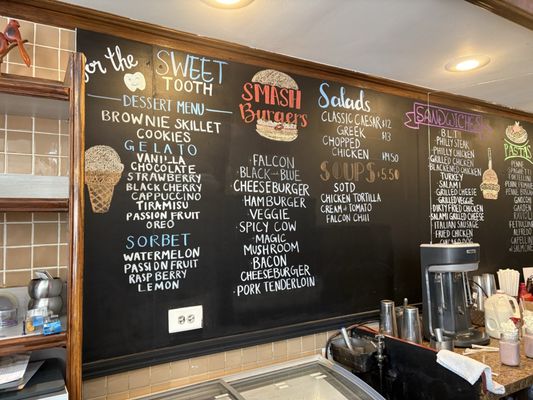 for the
SWEET
TOOTH
DESSERT MENU
BROWNIE SKILLET
COOKIES
GELATO
VANILLA
CHOCOLATE
STRAWBERRY
BLACK CHERRY
CAPPUCCINO
TIRAMISU
PASSION FRUIT
OREO
SORBET
WATERMELON
PASSION FRUIT
RASPBERRY
LEMON
SMASH
BURGERS
FALCON
BLACK-BLUE
CHEESEBURGER
HAMBURGER
VEGGIE
SPICY COW
MAGIC
MUSHROOM
BACON
CHEESEBURGER
PORK TENDERLOIN
Salads
CLASSIC CAESAR $12
GREEK $13
CHOPPED
CHICKEN $14.50
SOUPS $5.50
SOTD
CHICKEN TORTILLA
CREAM + TOMATO
FALCON CHILI
SANDWICHES
BLT
PHILLY STEAK
PHILLY CHICKEN
GRILLED CHICKEN
BLACKENED CHICKEN
TURKEY
SALAMI
GRILLED CHEESE
GRILLED VEGGIE
DIRTY FRIED CHICKEN
SALAMI GRILLED CHEESE
ITALIAN SAUSAGE
FRIED CHICKEN
CHICAGO DOG
PASTAS